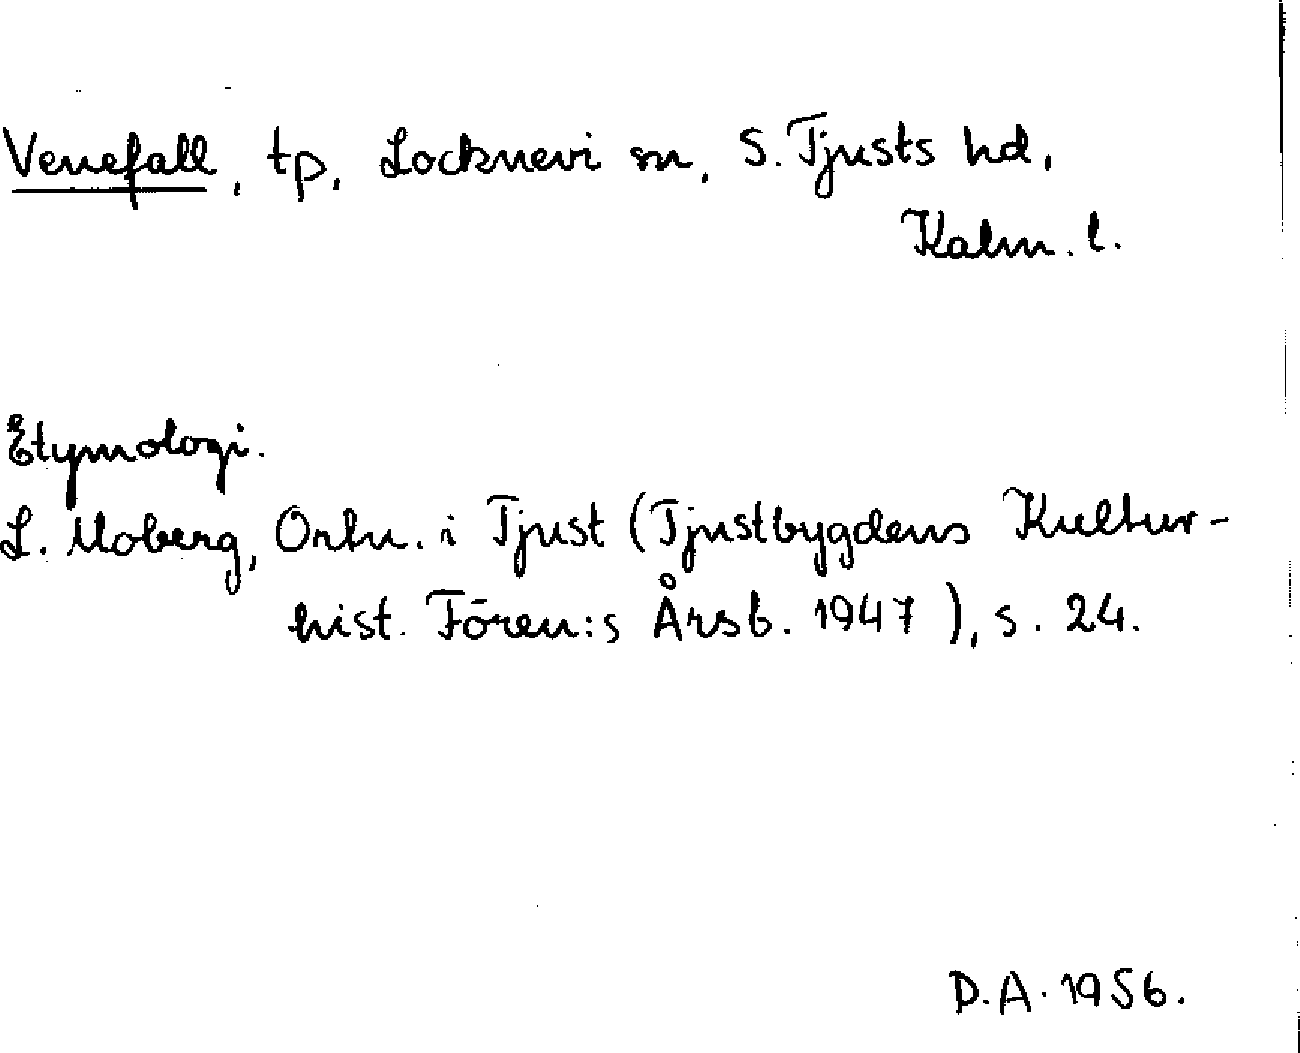 Venefall, tp, Locknevi sn, S. Tjusts hd,
Kalm. l.
Etymologi.
L. Moberg, Ortn. i Tjust (Tjustbygdens Kultur-
hist. Fören:s Årsb. 1947), s. 24.
D.A. 1956.